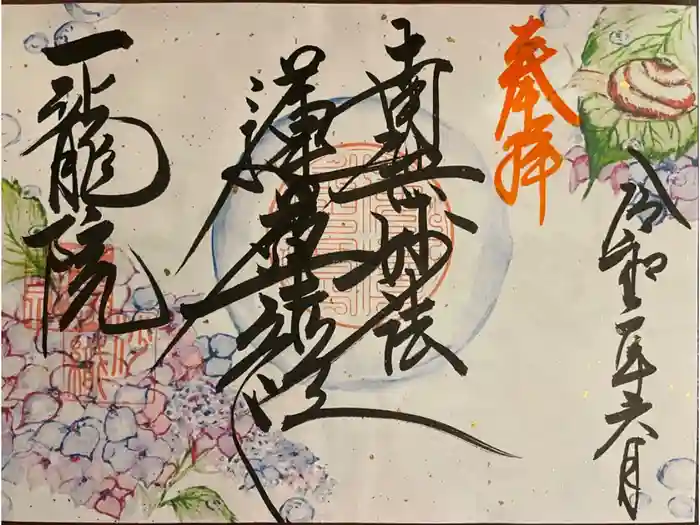 奉拝
令和二年六月
南無妙法
蓮華経
一龍院